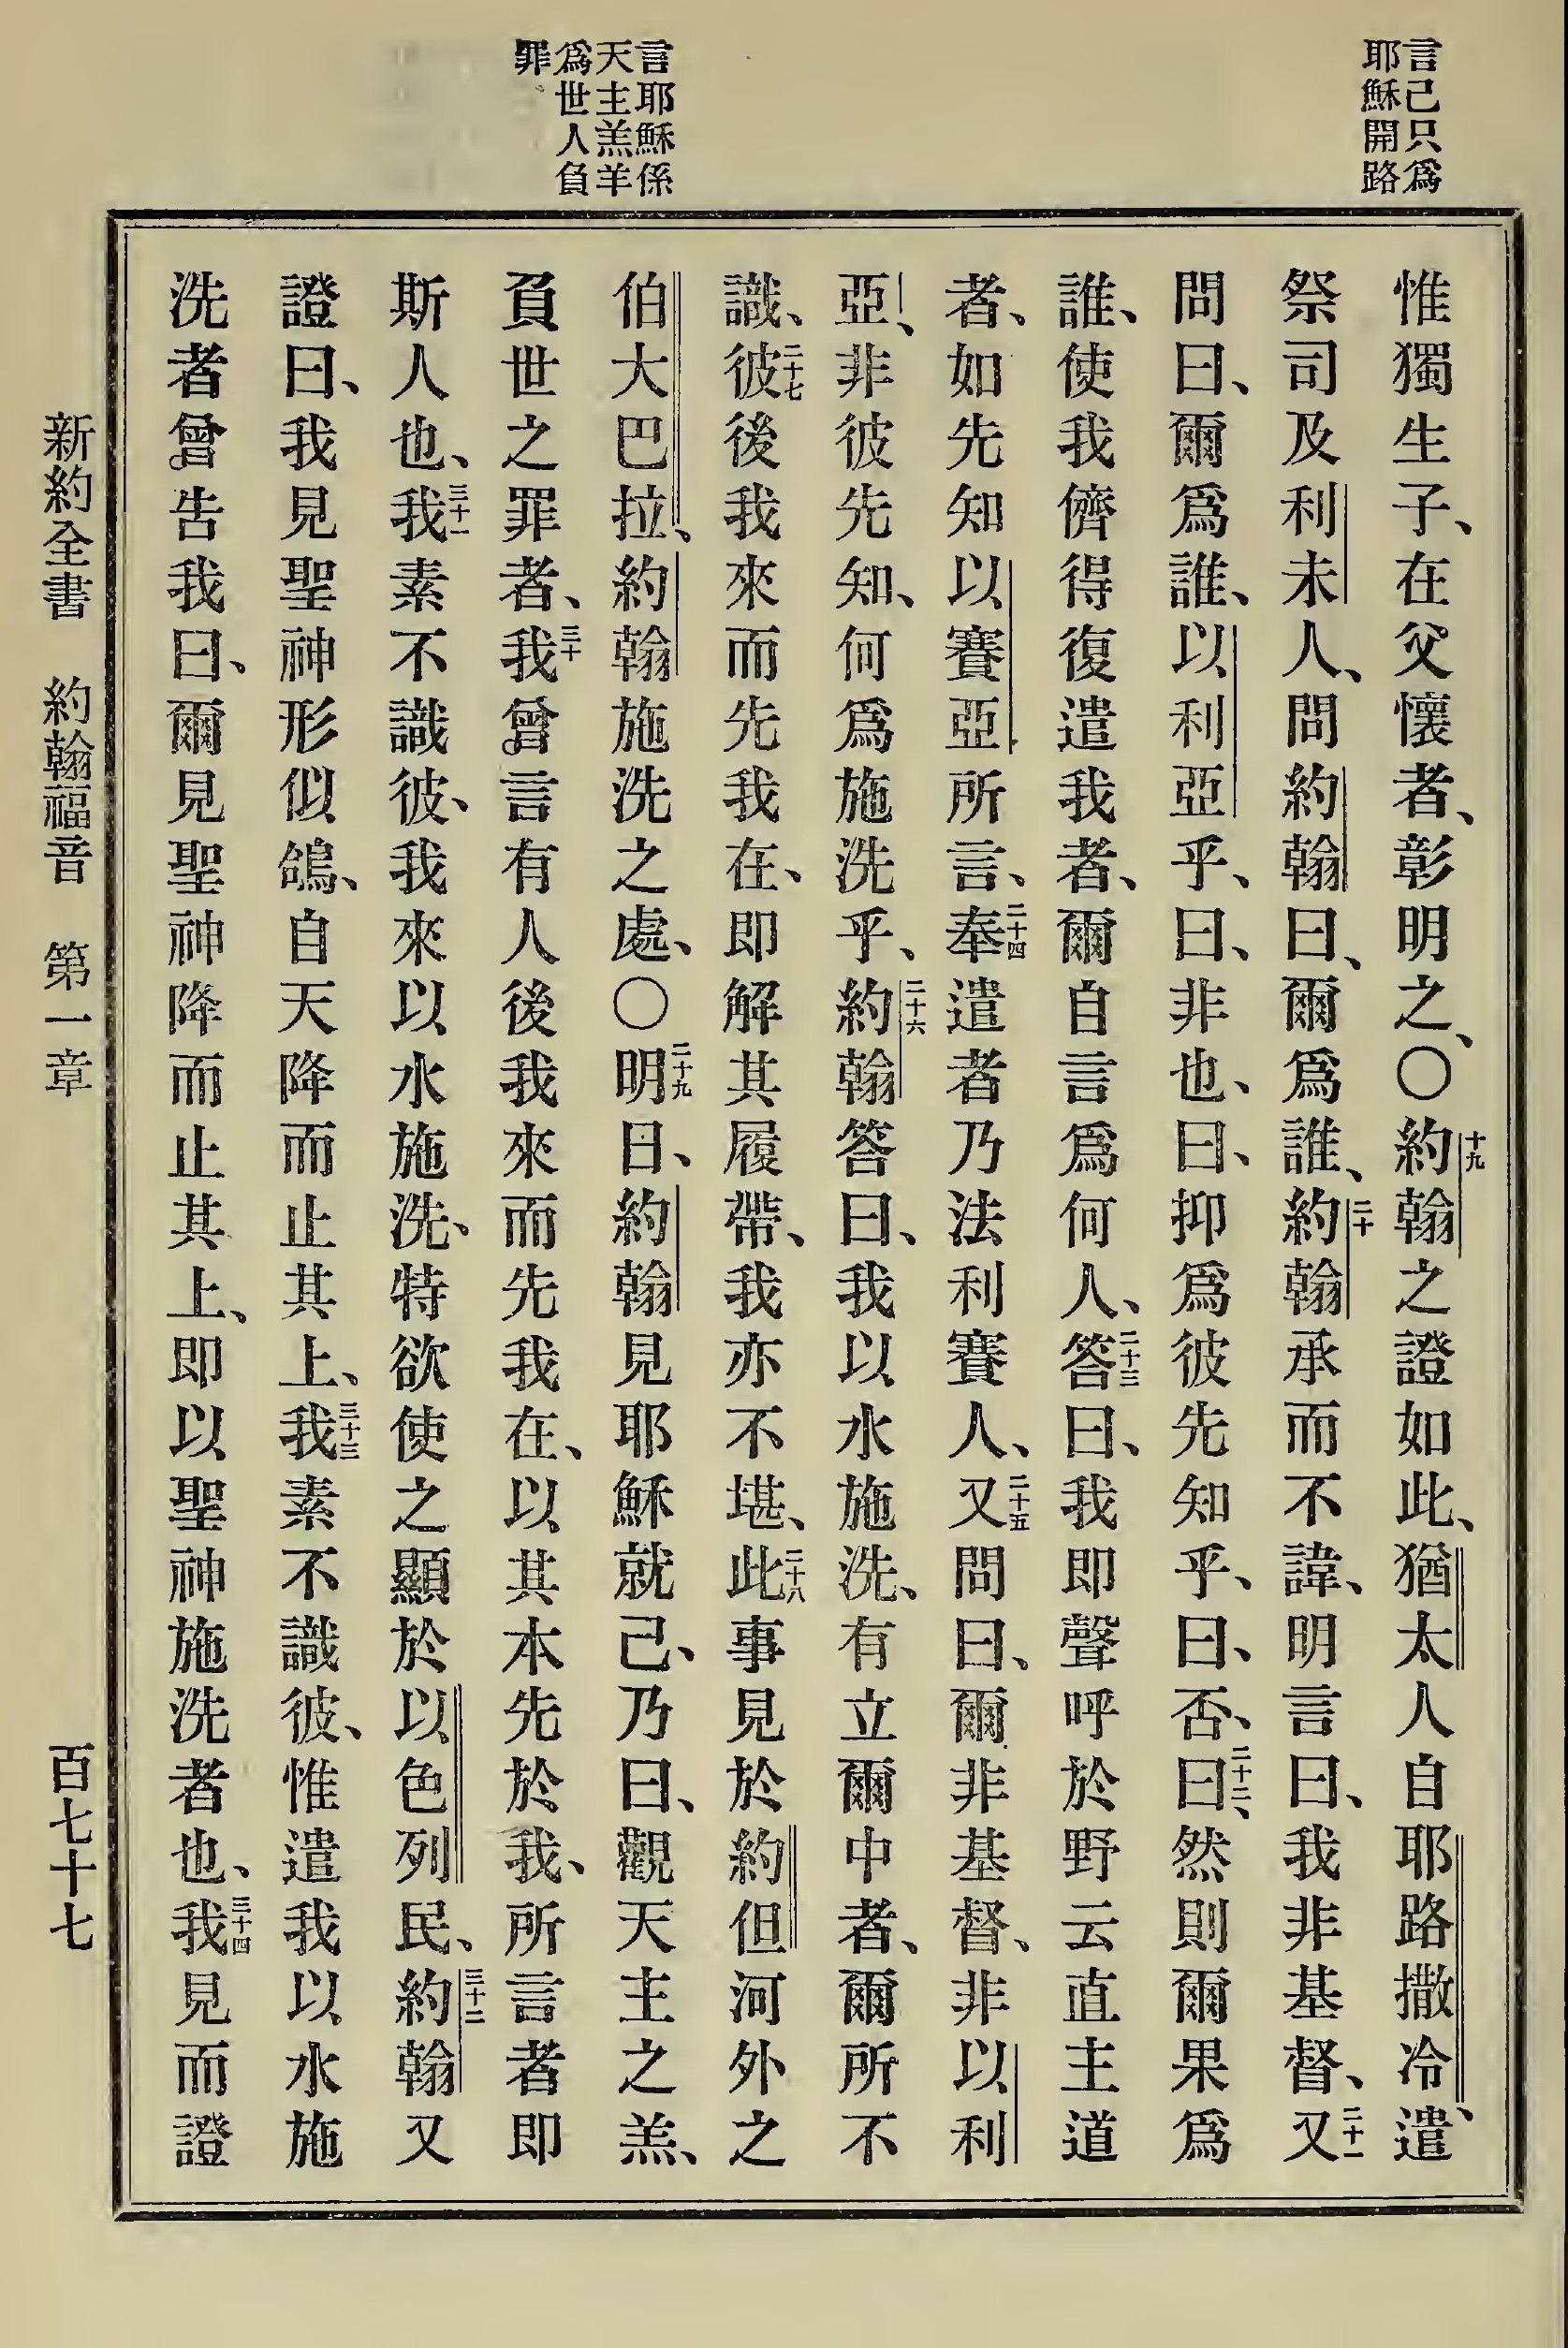 言己只爲
耶穌開路
言耶穌係
天主羔羊
爲世人負
罪
惟獨生子、在父懷者、彰明之、〇十九約翰之證如此、猶太人自耶路撒冷遣、
祭司及利未人、問約翰曰、爾爲誰、二十約翰承而不諱、明言曰、我非基督、二十一又
問曰、爾爲誰、以利亞乎、曰、非也、曰、抑爲彼先知乎、曰、否、二十二曰、然則爾果爲
誰、使我儕得復遣我者、爾自言爲何人、二十三答曰、我即聲呼於野云直主道
者、如先知以賽亞所言、二十四奉遣者乃法利賽人、二十五又問曰、爾非基督、非以利
亞、非彼先知、何爲施洗乎、二十六約翰答曰、我以水施洗、有立爾中者、爾所不
識、二十七彼後我來而先我在、即解其履帶、我亦不堪、二十八此事見於約但河外之
伯大巴拉、約翰施洗之處、〇二十九明日、約翰見耶穌就己、乃曰、觀天主之羔、
負世之罪者、三十我曾言有人後我來而先我在、以其本先於我、所言者即
斯人也、三十一我素不識彼、我來以水施洗、特欲使之顯於以色列民、三十二約翰又
證曰、我見聖神形似鴿、自天降而止其上、三十三我素不識彼、惟遣我以水施
洗者曾告我曰、爾見聖神降而止其上、即以聖神施洗者也、三十四我見而證
新約全書 約翰福音 第一章 百七十七